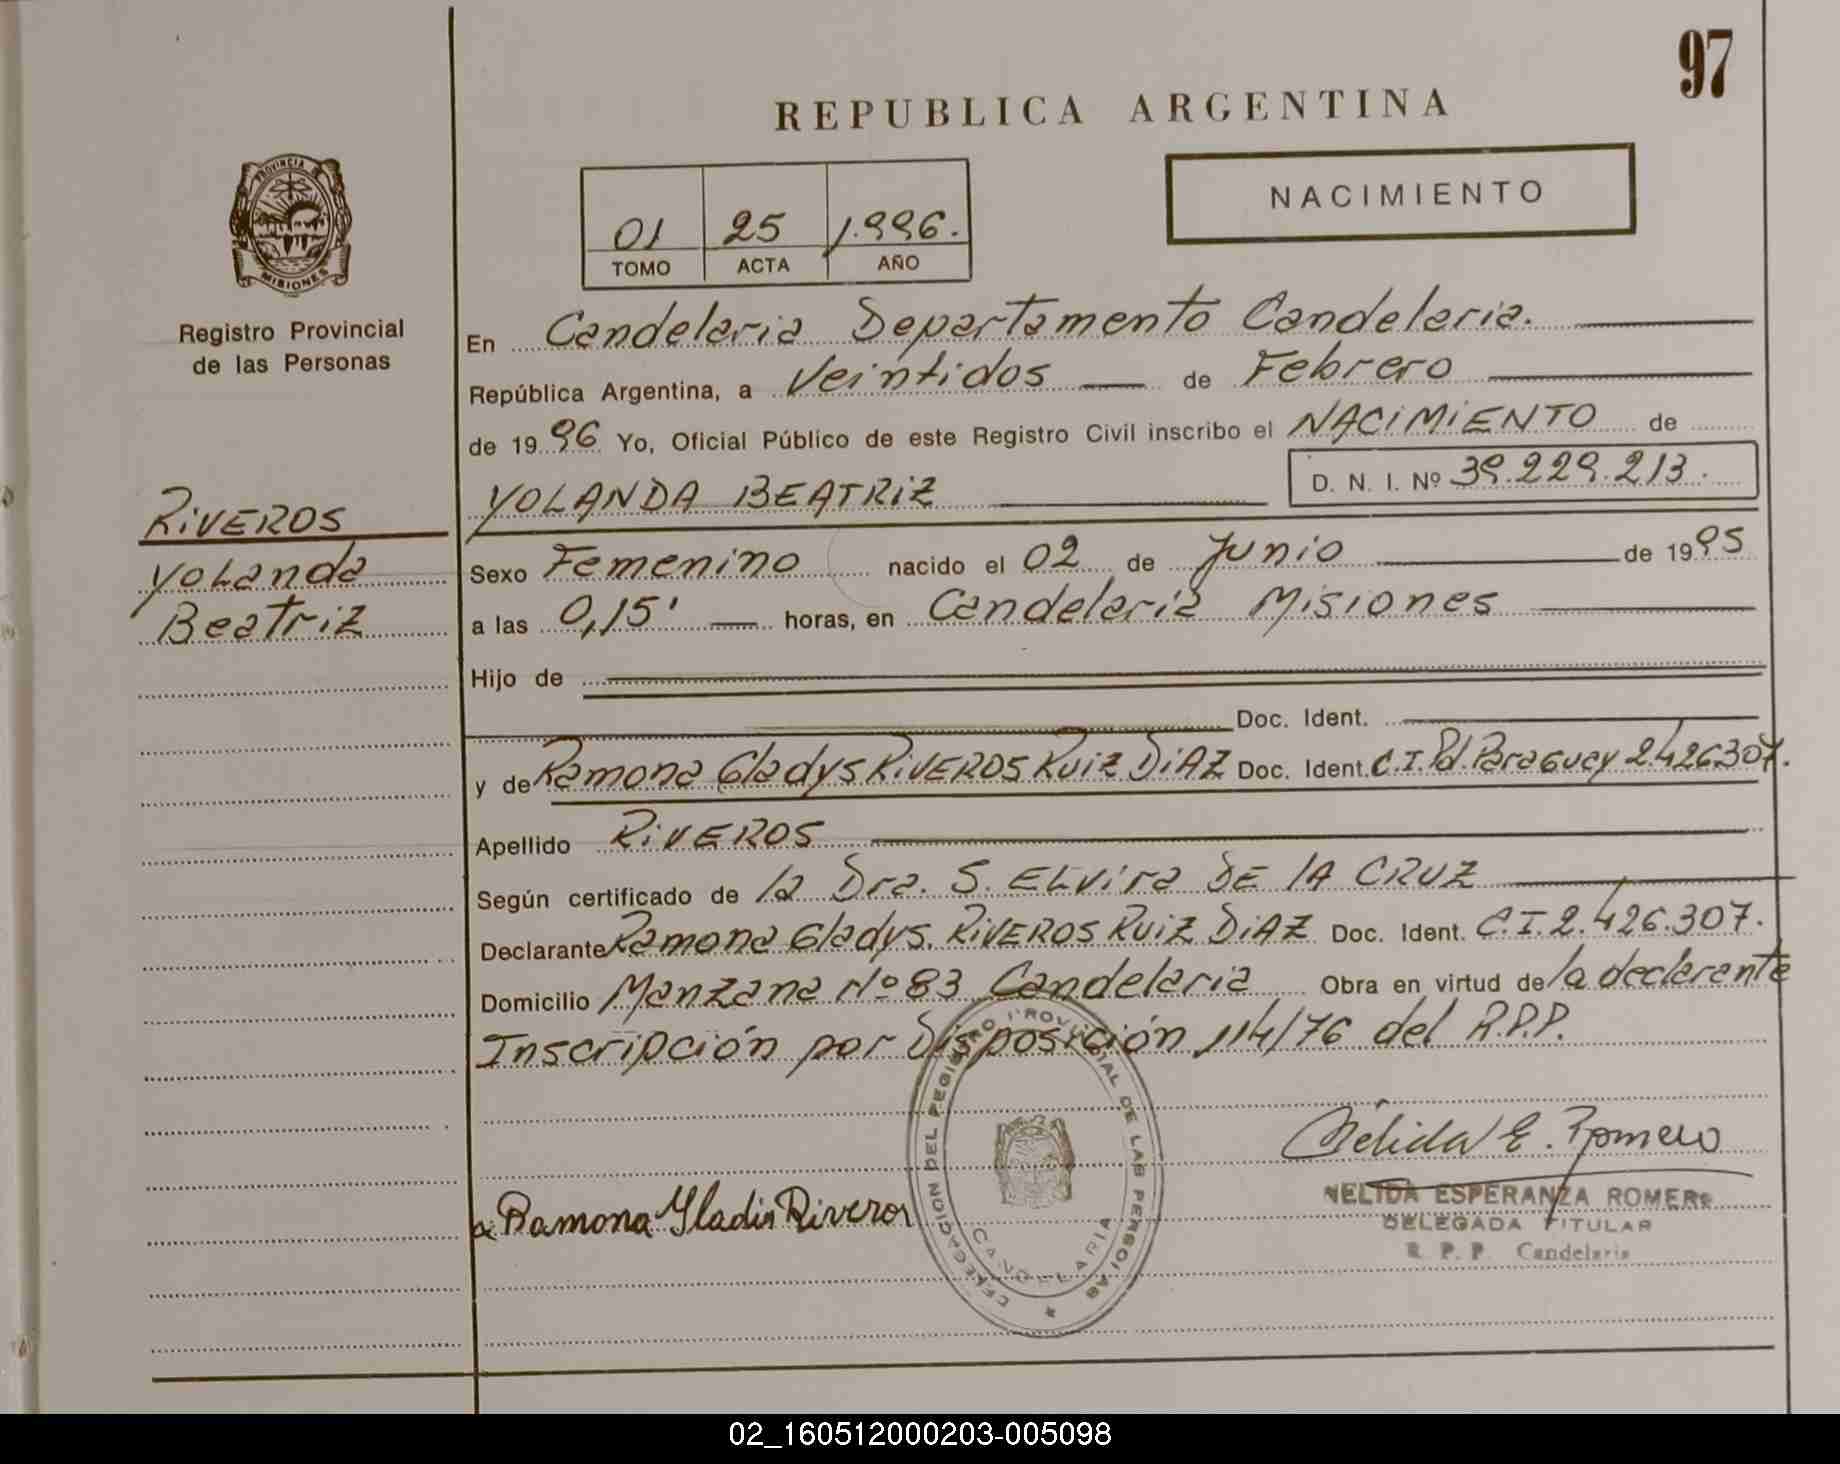 97
REPUBLICA ARGENTINA
PROVINCIA DE
MISIONES
Registro Provincial
de las Personas
01 25 1.996.
TOMO ACTA AÑO
NACIMIENTO
En Candelaria Departamento Candelaria.
República Argentina, a Veintidos de Febrero
de 1996 Yo, Oficial Público de este Registro Civil inscribo el NACIMIENTO de
YOLANDA BEATRIZ D. N. I. Nº 39.229.213.
RIVEROS
Yolanda
Beatriz
Sexo Femenino nacido el 02 de Junio de 1995
a las 0,15' horas, en Candelaria Misiones
Hijo de
Doc. Ident.
y de Ramona Gladys RIVEROS RUIZ DIAZ Doc. Ident. C.I. Pd. Paraguay 2.426307.
Apellido RIVEROS
Según certificado de la Dra. S. ELVira DE lA CRUZ
Declarante Ramona Gladys. RIVEROS RUIZ DIAZ Doc. Ident. C.I. 2.426.307.
Domicilio Manzana Nº 83 Candelaria Obra en virtud de la declarante
Inscripción por Disposición 114/76 del R.P.P.
DELEGACION DEL REGISTRO PROVINCIAL DE LAS PERSONAS
CANDELARIA
a Ramona Gladis Riveros
Nélida E. Romero
NELIDA ESPERANZA ROMERO
DELEGADA TITULAR
R. P. P. Candelaria
02_160512000203-005098